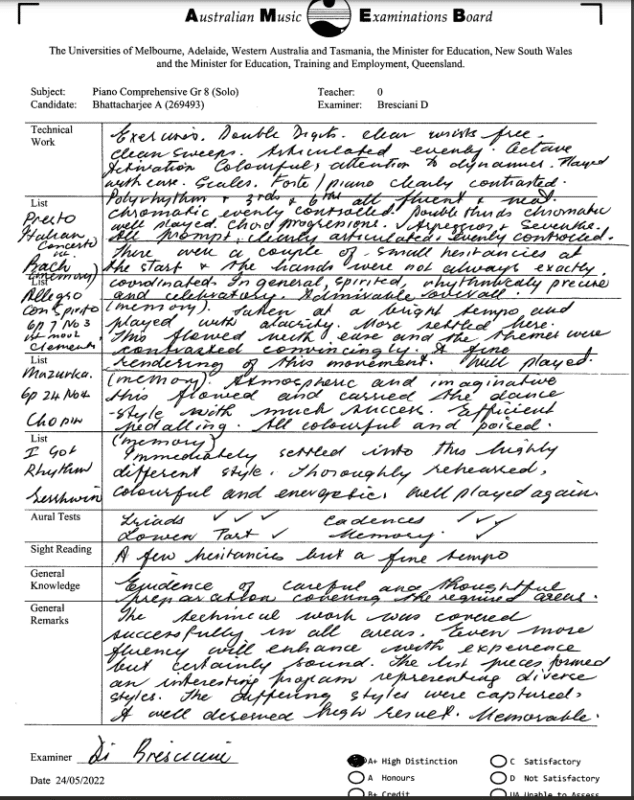 Australian Music Examinations Board
The Universities of Melbourne, Adelaide, Western Australia and Tasmania, the Minister for Education, New South Wales
and the Minister for Education, Training and Employment, Queensland.
Subject: Piano Comprehensive Gr 8 (Solo) Teacher: 0
Candidate: Bhattacharjee A (269493) Examiner: Bresciani D
Technical Work
Exercises. Double Digits. clear wrists free.
clean sweeps. Articulated evenly. Octave
Activation Colourful, attention to dynamics. Played
with care. Scales. Forte/piano clearly contrasted.
Polyrhythm + 3rds + 6ths all fluent & neat.
chromatic evenly controlled. Double thirds chromatic
well played. Chord progressions. Arpeggios & Sevenths.
All prompt, clearly articulated, evenly controlled.
List
Presto
Italian
Concerto
Bach
(memory)
There were a couple of small hesitancies at
the start & the hands were not always exactly
coordinated. In general, spirited, rhythmically precise
and celebratory. Admirable overall.
List
Allegro
Con Spirito
Op 7 No 3
1st movt
Clementi
(memory). Taken at a bright tempo and
played with alacrity. More settled here.
This flowed with ease and the themes were
contrasted convincingly. A fine
rendering of this movement. Well played.
List
Mazurka.
Op 24 No 4
Chopin
(memory). Atmospheric and imaginative
this flowed and carried the dance
-style with much success. Efficient
pedalling. All colourful and poised.
List
I Got
Rhythm
Gershwin
(memory)
Immediately settled into this highly
different style. Thoroughly rehearsed,
colourful and energetic. Well played again.
Aural Tests
Triads ✓ ✓ ✓ Cadences ✓ ✓
Lower Part ✓ Memory. ✓
Sight Reading
A few hesitancies but a fine tempo
General Knowledge
Evidence of careful and thoughtful
preparation covering the required areas.
General Remarks
The technical work was covered
successfully in all areas. Even more
fluency will enhance with experience
but certainly sound. The list pieces formed
an interesting program representing diverse
styles. The differing styles were captured.
A well deserved high result. Memorable.
Examiner Di Bresciani
Date 24/05/2022
A+ High Distinction C Satisfactory
A Honours D Not Satisfactory
B+ Credit UA Unable to Assess